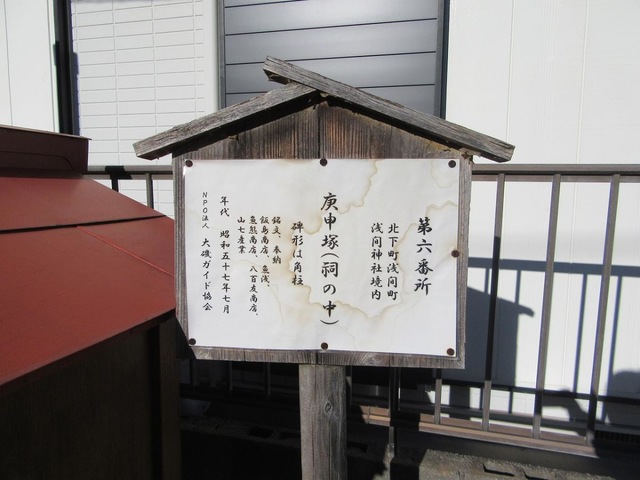 第六番所
北下町浅間町
浅間神社境内
庚申塚(祠の中)
碑形は角柱
銘文、奉納
飯島商店、魚浅、
魚熊商店、八百友商店、
山七産業
年代 昭和五十七年七月
NPO法人 大磯ガイド協会